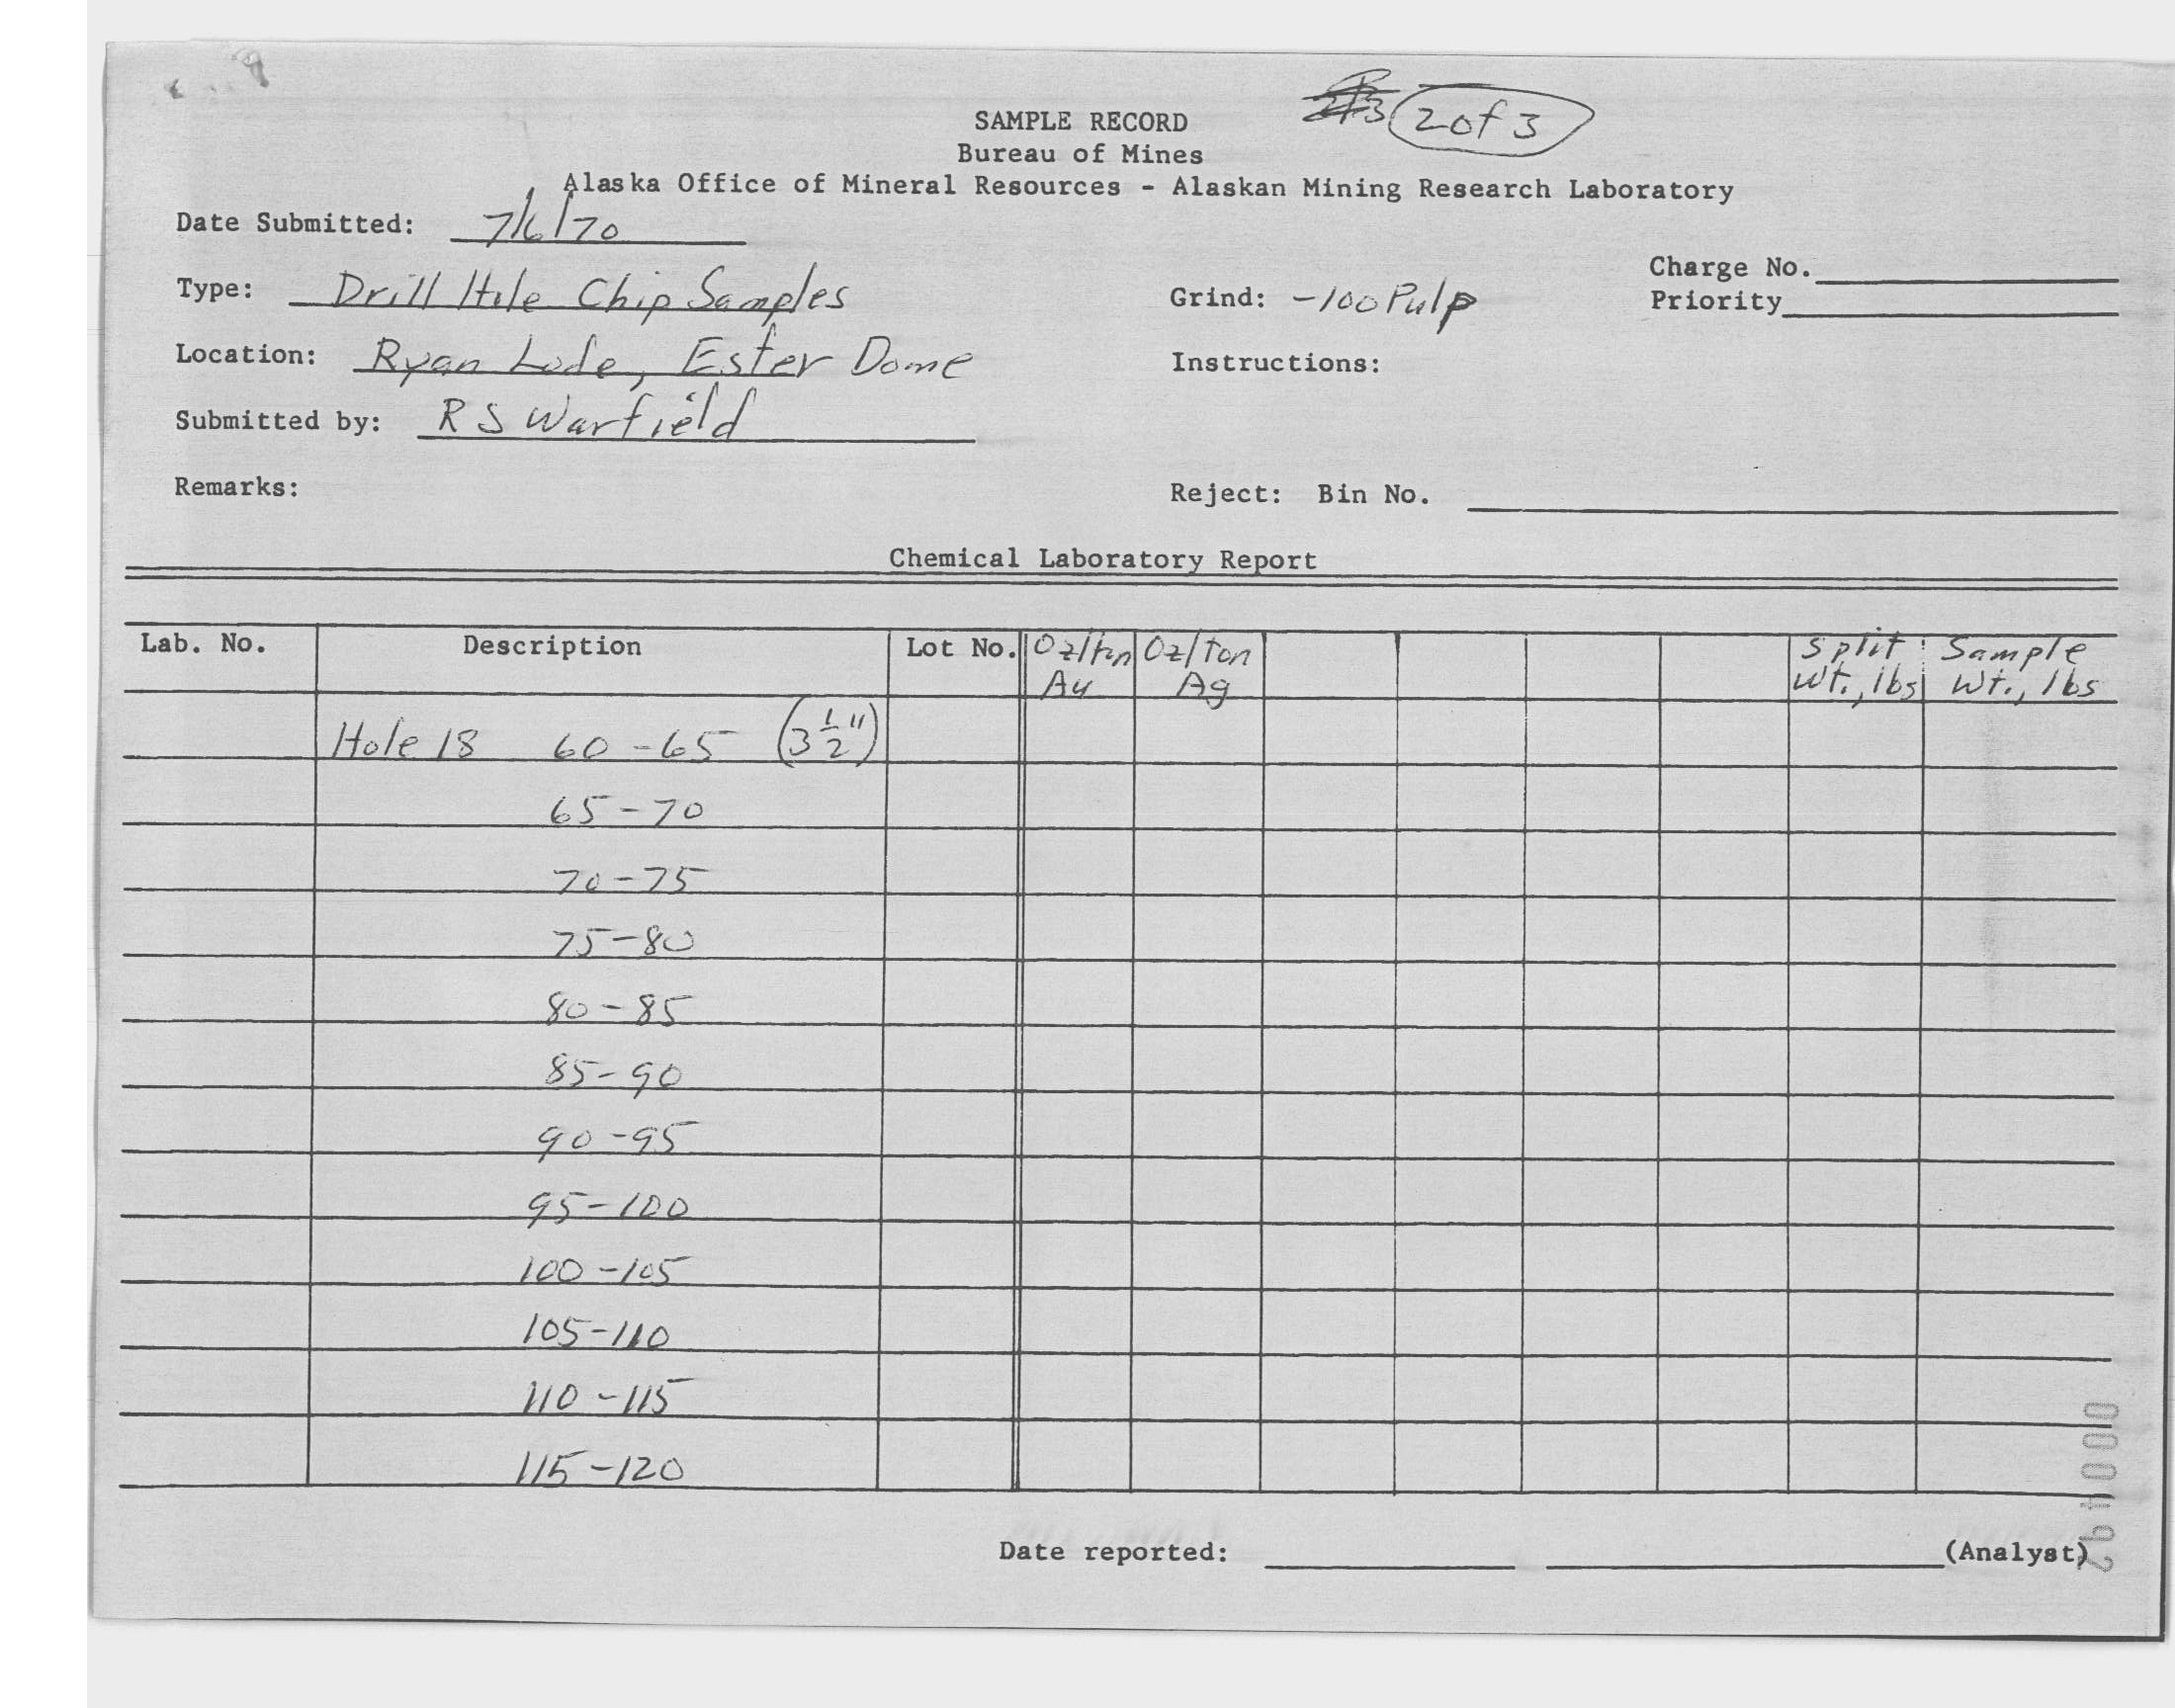 2 of 3
SAMPLE RECORD
Bureau of Mines
Alaska Office of Mineral Resources - Alaskan Mining Research Laboratory
Date Submitted: 7/6/70
Charge No.
Type: Drill Hole Chip Samples Grind: -100 Pulp Priority
Location: Ryan Lode, Ester Dome Instructions:
Submitted by: R S Warfield
Remarks: Reject: Bin No.
Chemical Laboratory Report
Lab. No. Description Lot No. Oz/ton Au Oz/ton Ag Split Wt., lbs Sample Wt., lbs
Hole 18 60-65 (3 1/2")
65-70
70-75
75-80
80-85
85-90
90-95
95-100
100-105
105-110
110-115
115-120
Date reported: (Analyst)
000492